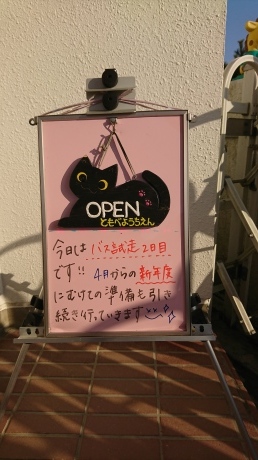 OPEN
ともべようちえん
今日は バス試走2日目
です!! 4月からの新年度
にむけての準備も引き
続き行っていきます